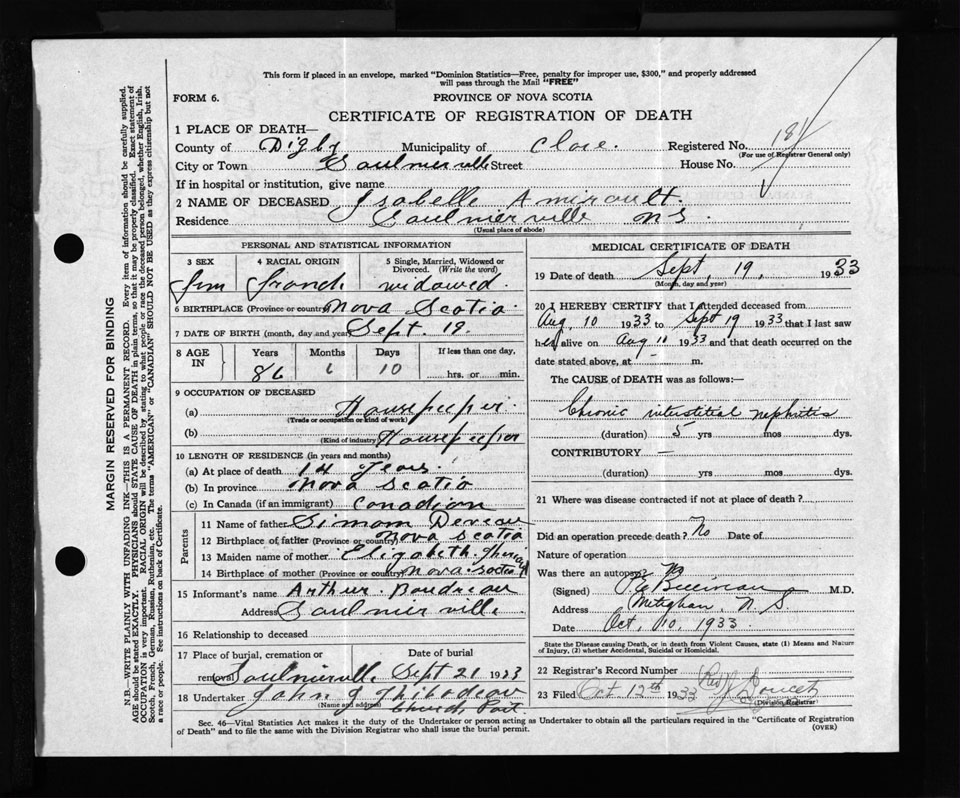 This form if placed in an envelope, marked "Dominion Statistics—Free, penalty for improper use, $300," and properly addressed
will pass through the Mail "FREE"
FORM 6.
PROVINCE OF NOVA SCOTIA
CERTIFICATE OF REGISTRATION OF DEATH
1 PLACE OF DEATH—
County of Digby Municipality of Clare. Registered No.
(For use of Registrar General only)
City or Town Saulnierville Street House No.
If in hospital or institution, give name
2 NAME OF DECEASED Isabelle Amirault.
Residence Saulnierville N.S.
(Usual place of abode)
PERSONAL AND STATISTICAL INFORMATION
3 SEX 4 RACIAL ORIGIN 5 Single, Married, Widowed or
Divorced. (Write the word)
Fem French widowed.
6 BIRTHPLACE (Province or country) Nova Scotia
7 DATE OF BIRTH (month, day and year) Sept. 18.
8 AGE
IN
Years Months Days If less than one day,
86 6 10 hrs. or min.
9 OCCUPATION OF DECEASED
(a) Housekeeper.
(Trade or occupation or kind of work)
(b) Housekeeper
(Kind of industry)
10 LENGTH OF RESIDENCE (in years and months)
(a) At place of death 14 years.
(b) In province Nova Scotia
(c) In Canada (if an immigrant) Canadian
Parents
11 Name of father Simon Deveau
12 Birthplace of father (Province or country) Nova Scotia
13 Maiden name of mother Elizabeth
14 Birthplace of mother (Province or country) Nova Scotia
15 Informant's name Arthur Boudreau
Address Saulnierville
16 Relationship to deceased
17 Place of burial, cremation or Date of burial
removal Saulnierville Sept 21 1933
18 Undertaker John J Thibodeau
(Name and address) Church Point
MEDICAL CERTIFICATE OF DEATH
19 Date of death Sept, 19, 1933
(Month, day and year)
20 I HEREBY CERTIFY that I attended deceased from
Aug. 10 1933 to Sept 19 1933 that I last saw
her alive on Aug 11 1933 and that death occurred on the
date stated above, at — m.
The CAUSE of DEATH was as follows:—
Chronic interstitial nephritis
(duration) 5 yrs mos dys.
CONTRIBUTORY —
(duration) yrs mos dys.
21 Where was disease contracted if not at place of death?
Did an operation precede death? No Date of
Nature of operation
Was there an autopsy No
(Signed) M.D.
Address Meteghan, N.S
Date Oct, 10, 1933
State the Disease causing Death, or in death from Violent Causes, state (1) Means and Nature
of Injury, (2) whether Accidental, Suicidal or Homicidal.
22 Registrar's Record Number
23 Filed Oct 12th 1933 Doucet
(Division Registrar)
Sec. 46—Vital Statistics Act makes it the duty of the Undertaker or person acting as Undertaker to obtain all the particulars required in the "Certificate of Registration
of Death" and to file the same with the Division Registrar who shall issue the burial permit.
(OVER)
MARGIN RESERVED FOR BINDING
N.B.—WRITE PLAINLY WITH UNFADING INK—THIS IS A PERMANENT RECORD. Every item of information should be carefully supplied.
AGE should be stated EXACTLY. PHYSICIANS should STATE CAUSE OF DEATH in plain terms, so that it may be properly classified. Exact statement of
OCCUPATION is very important. RACIAL ORIGIN will be described by stating to what people or race the deceased person belonged, whether English, Irish,
Scotch, French, German, Russian, Ruthenian, etc. The terms "AMERICAN" or "CANADIAN" SHOULD NOT BE USED as they express citizenship but not
a race or people. See instructions on back of Certificate.